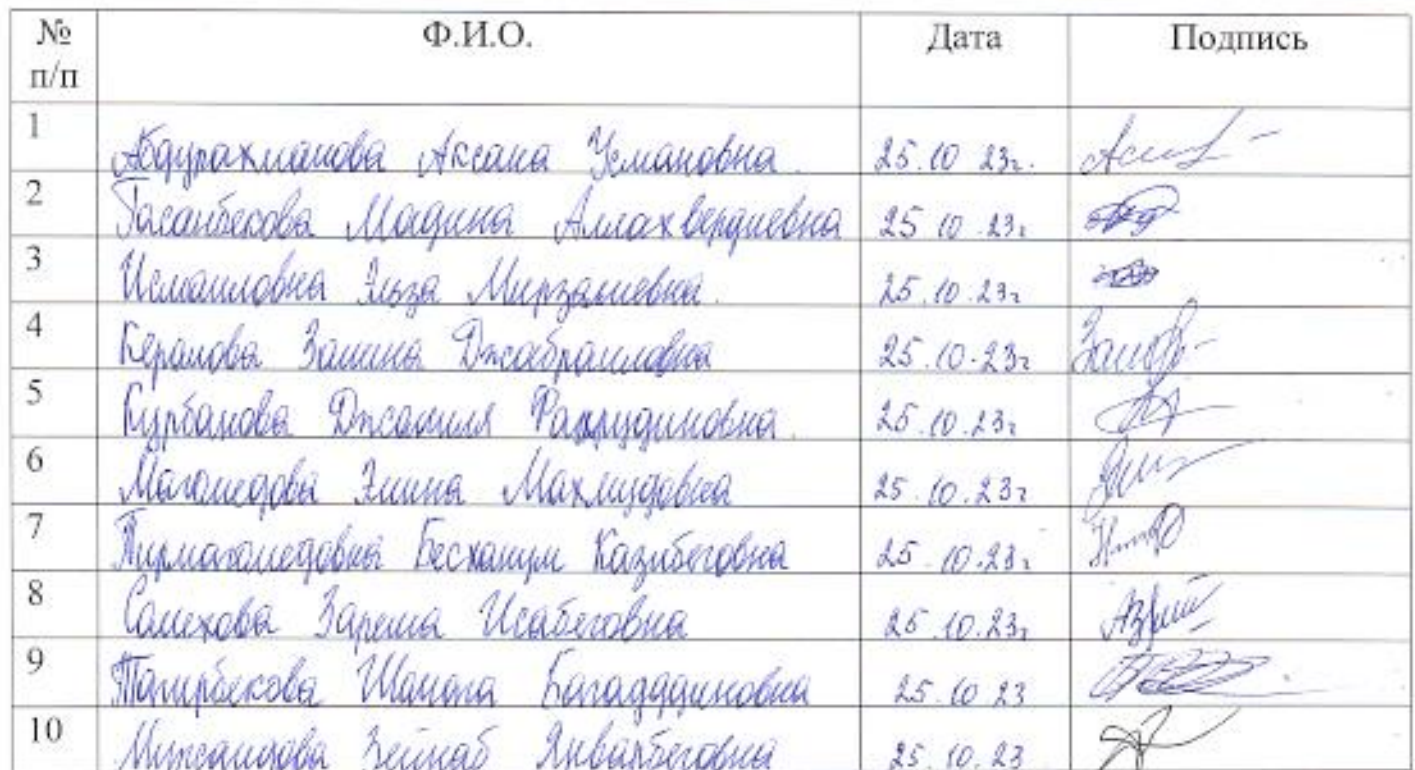 № п/п Ф.И.О. Дата Подпись
1 Абдурахманова Аксана Усмановна. 25.10 23г.
2 Гасанбекова Мадина Аллахвердиевна 25 10 .23г
3 Исмаиловна Эльза Мирзалиевна. 25.10.23г
4 Керимова Замина Джабраиловна 25.10.23г
5 Курбанова Джамиля Фахрудиновна. 25.10.23г
6 Магомедова Эмина Махмудовна 25.10.23г
7 Пирмагомедовна Бесханум Казибеговна 25.10.23г
8 Салихова Зарема Исабеговна 25.10.23г
9 Таирбекова Багададиновна 25.10 23
10 Зейнаб Январбеговна 25.10.23